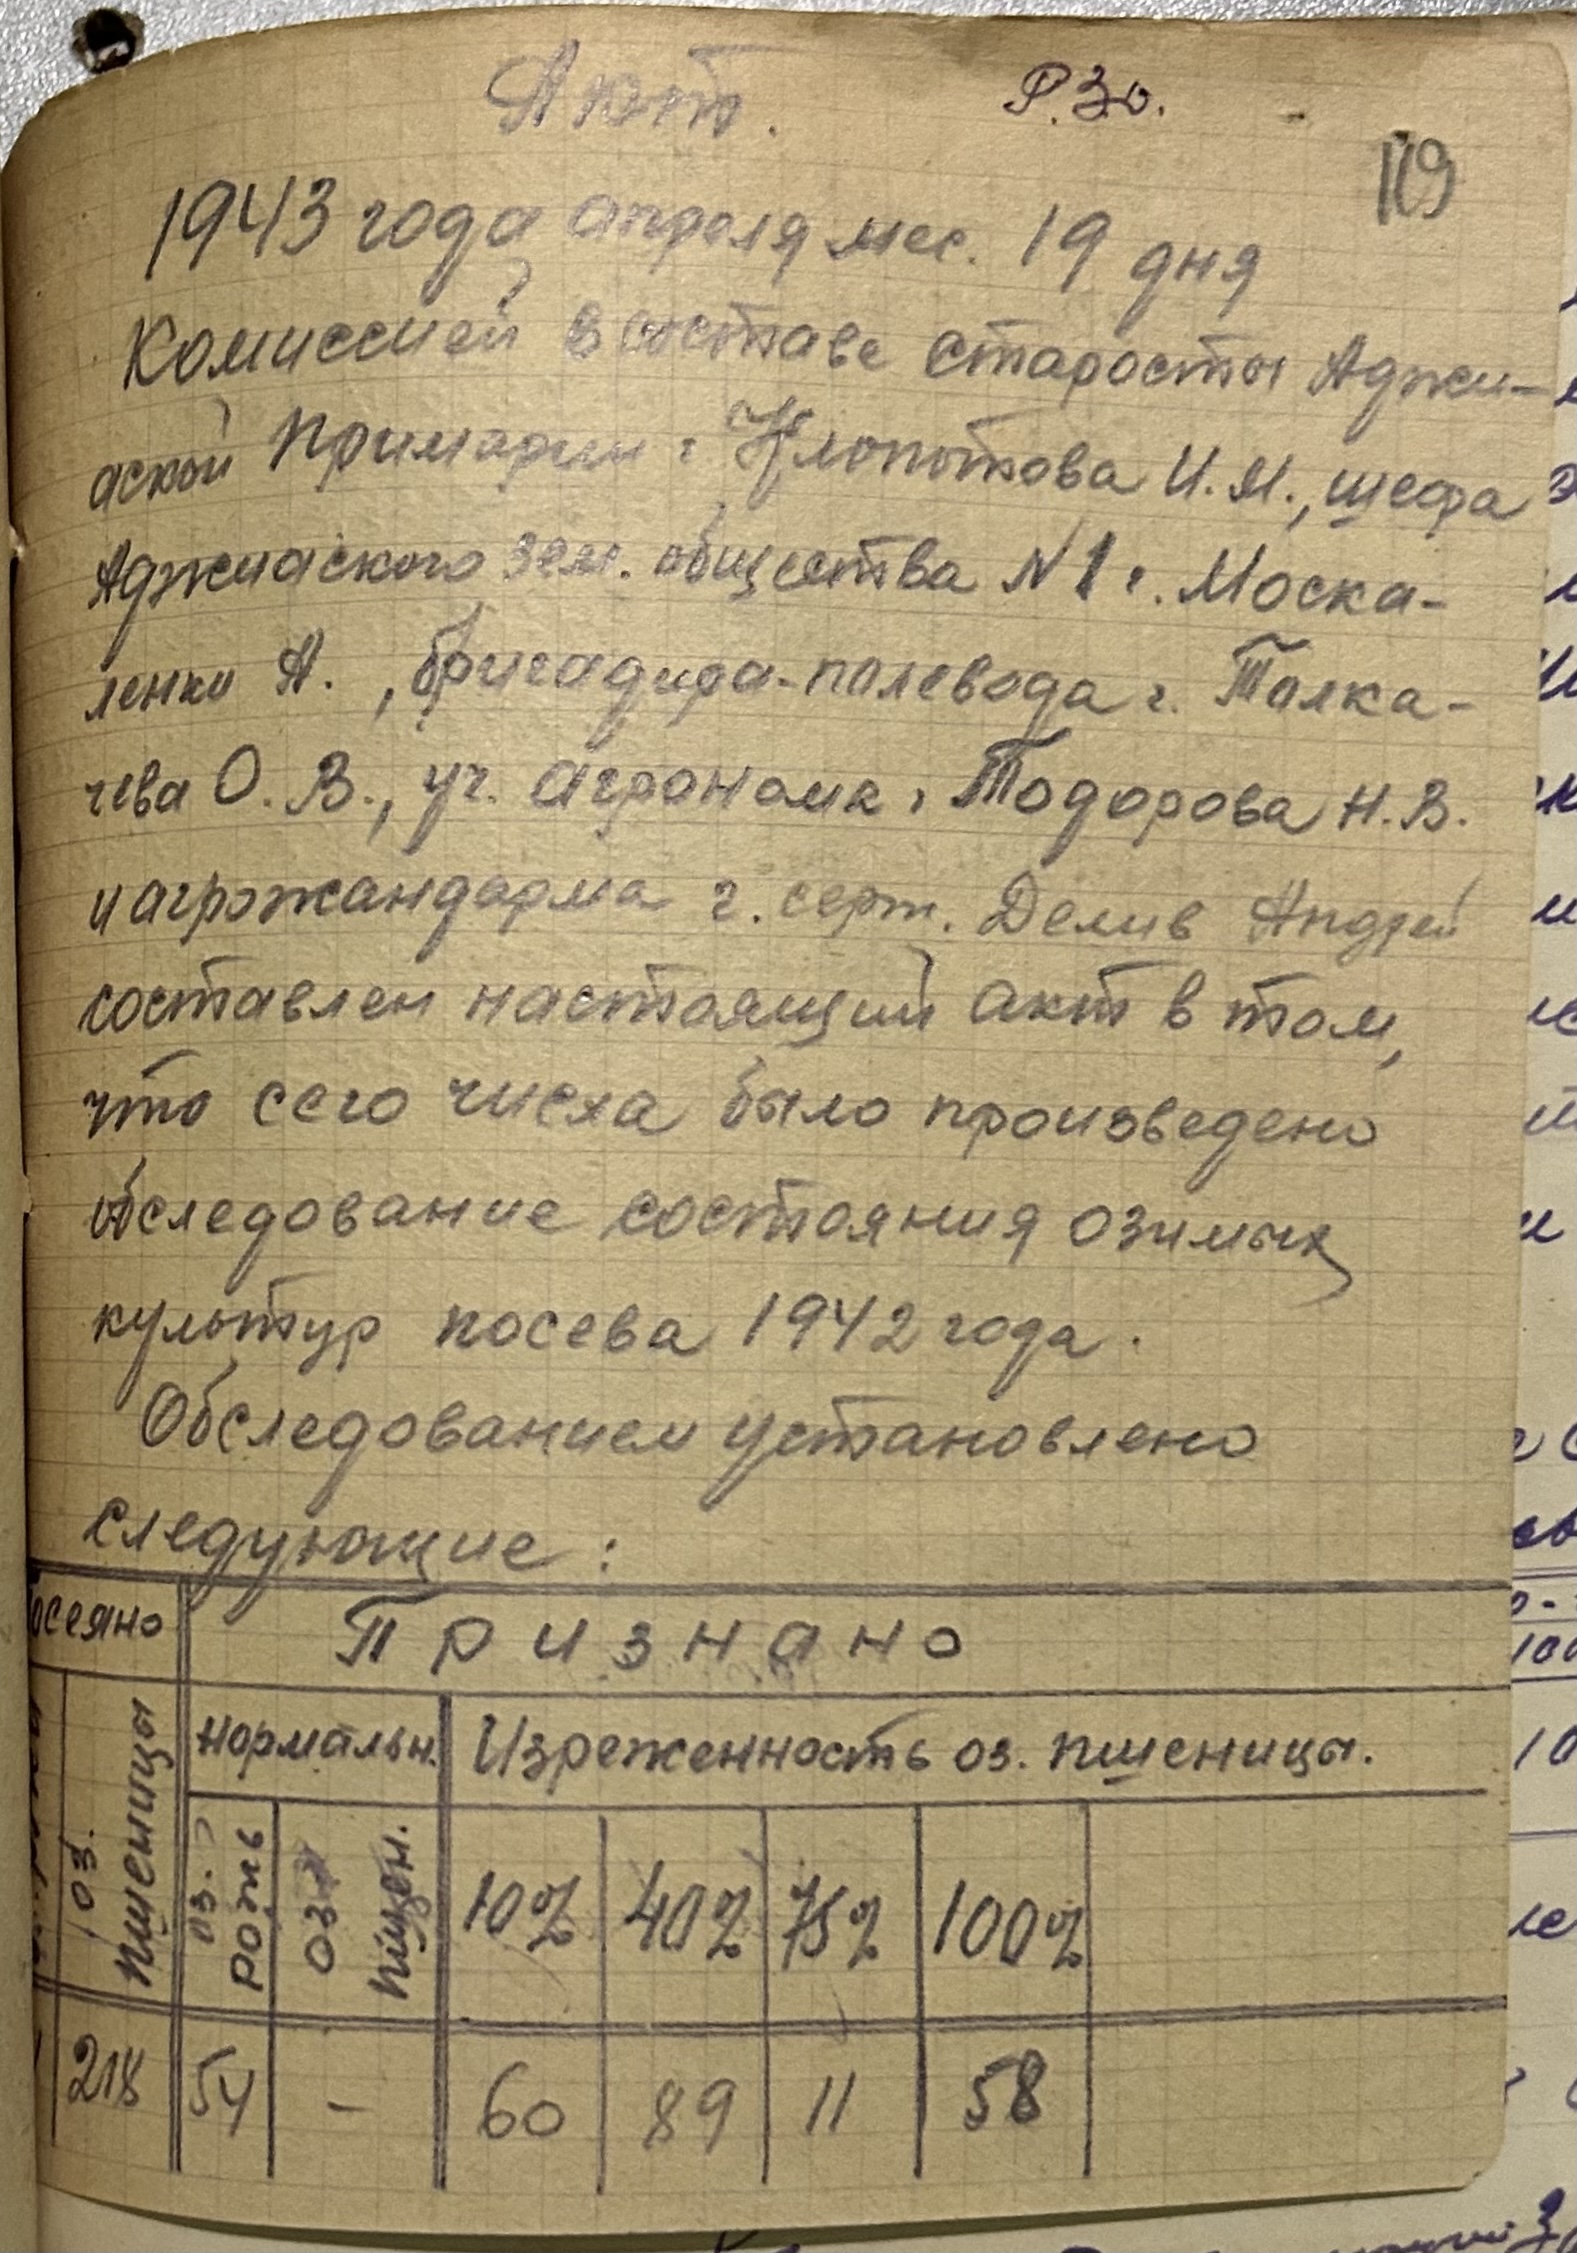 Акт. Р.З.О.
119
1943 года апреля мес. 19 дня
Комиссией в составе старосты Аджи-
аской Примарии г. Клопотова И.М., шефа
Аджиаского зем. общества N1 г. Моска-
ленко А., бригадира-полевода г. Толка-
чева О.В., уч. агронома г. Тодорова Н.В.
и агрожандарма г. серж. Делив Андрей
составлен настоящий акт в том,
что сего числа было произведено
обследование состояния озимых
культур посева 1942 года.
Обследованием установлено
следующие:
осеяно Признано
нормальн. Изреженность оз. пшеницы.
оз. пшеницы оз. рожь оз. пшен. 10% 40% 75% 100%
218 54 - 60 89 11 58